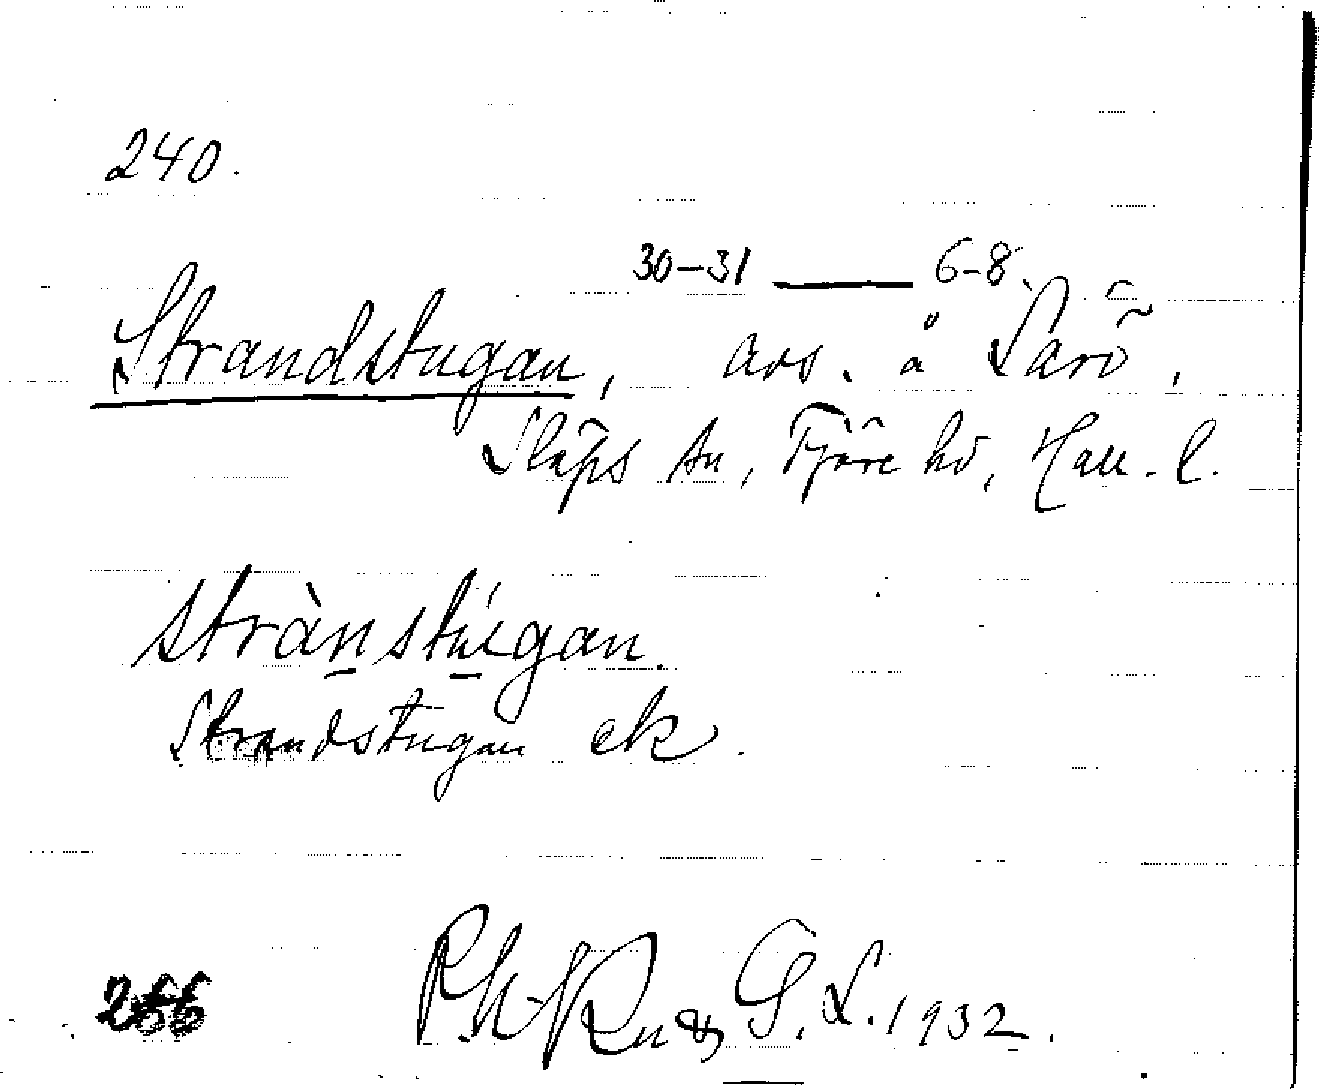 240.
30-31 — 6-8.
Strandstugan, avs. å Särö,
Släps sn, Fjäre hd, Hall. l.
strànstúgan.
Strandstugan ek.
266 G. L. 1932.